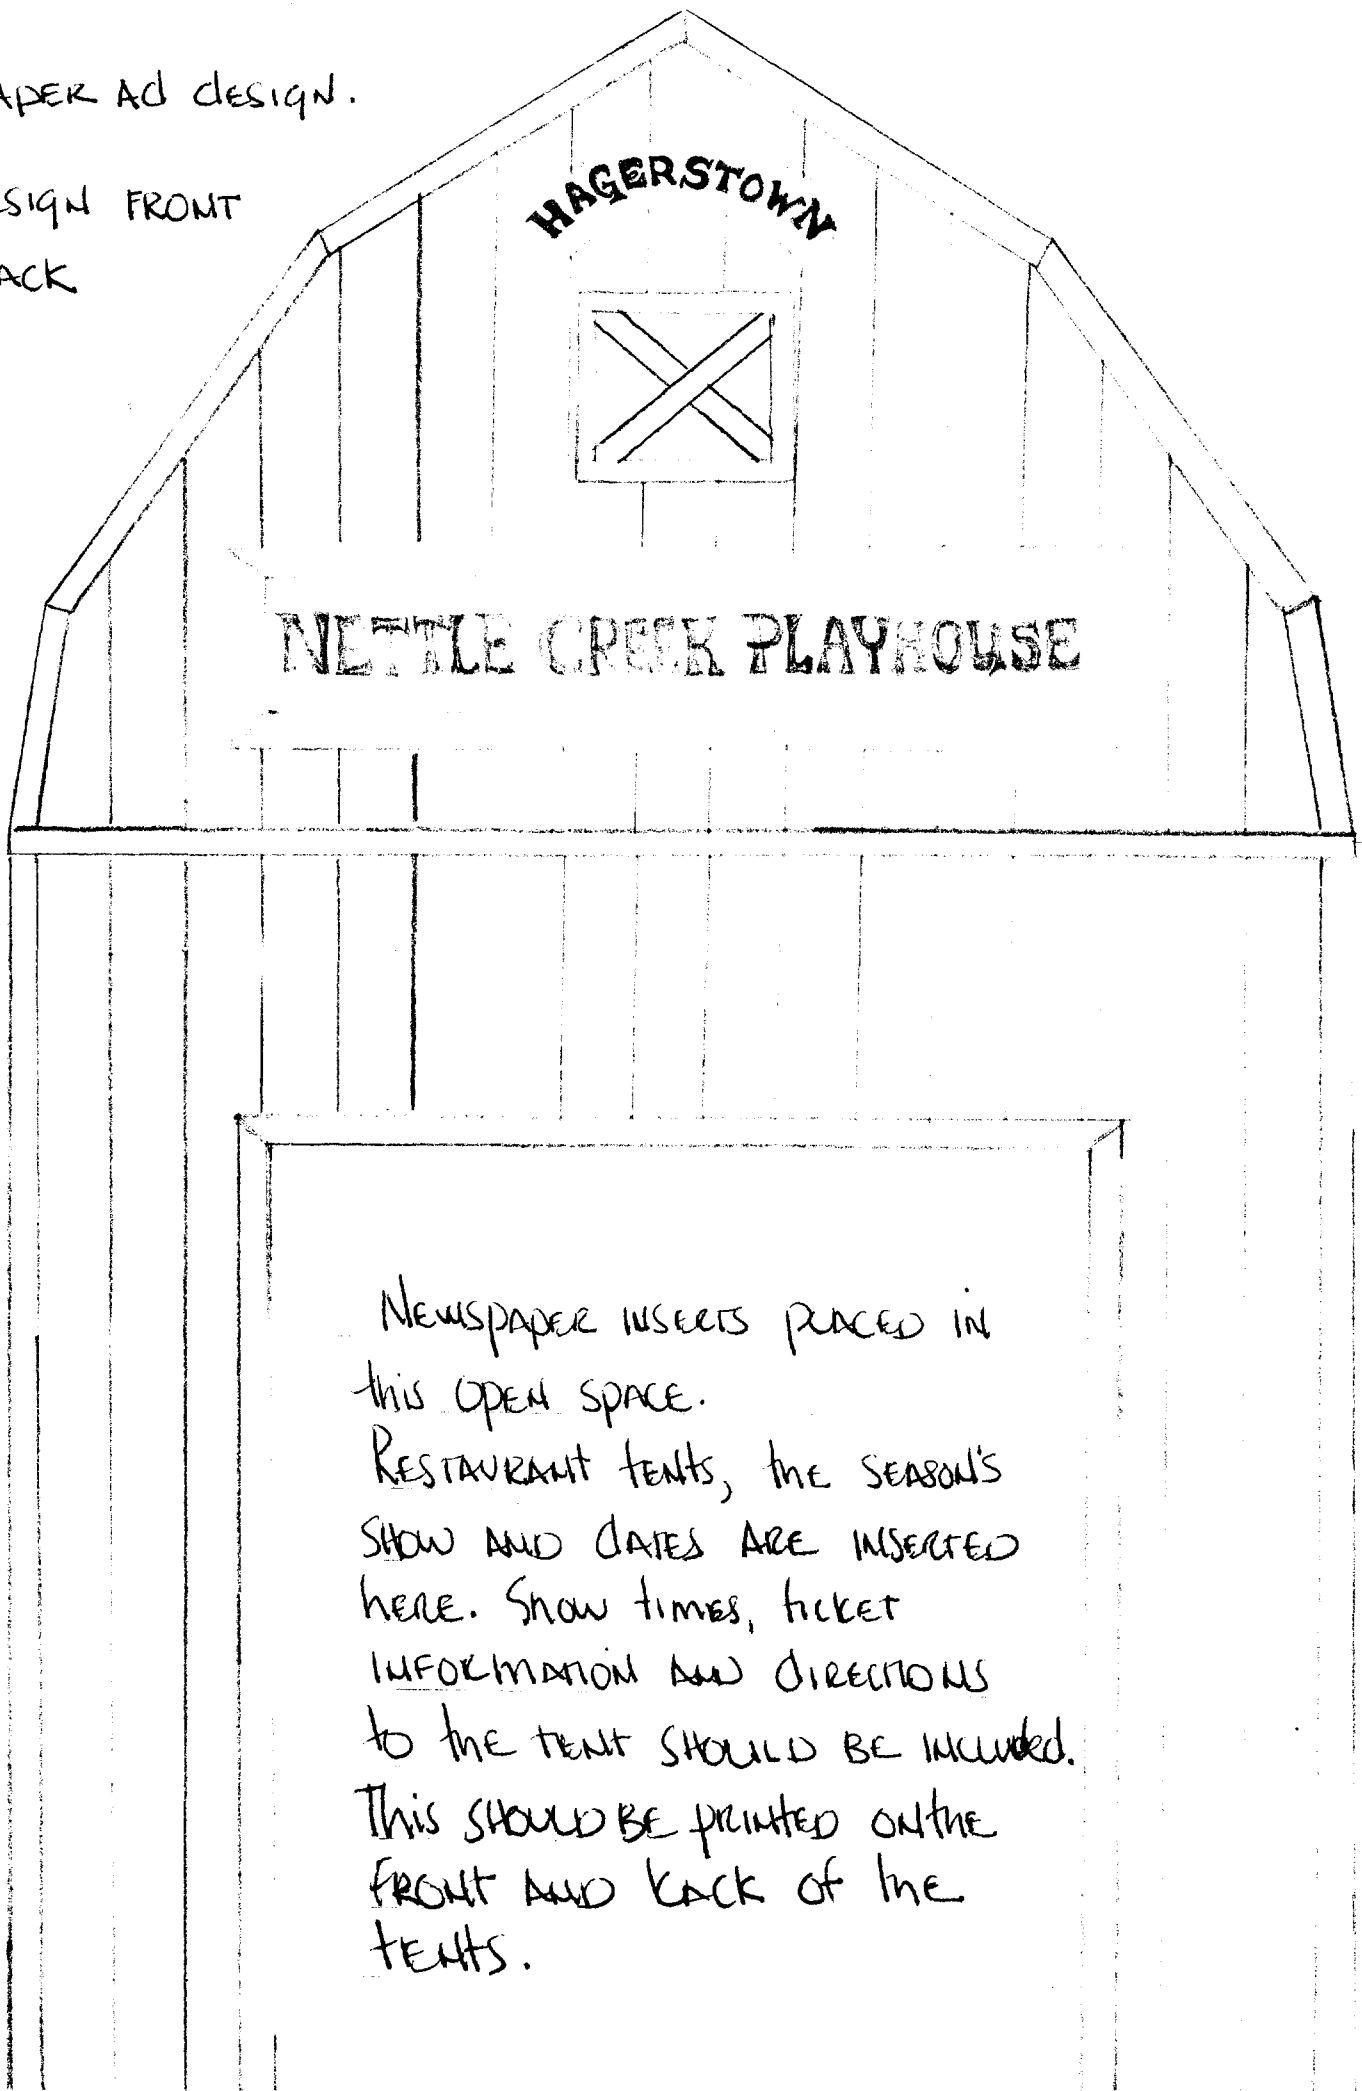 APER Ad dESIGN.
SIGN FRONT
ACK
HAGERSTOWN
NETTLE CREEK PLAYHOUSE
NEWSPAPER INSERTS PLACED IN
this OPEN SPACE.
RESTAURANT tENTS, thE SEASON'S
SHOW AND dATES ARE INSERTED
hERE. Show tIMES, tICKET
INFORMATION AND dIRECTIONS
to thE TENT SHOULD BE INCLUDEd.
This SHOULD BE PRINTED ON thE
FRONT AND BACK Of thE
tENTS.